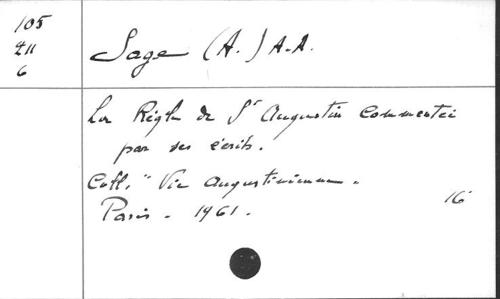 105
211
6
Sage (A.) A.A.
La Règle de St Augustin commentée
par ses écrits.
Coll. "Vie Augustinienne".
Paris - 1961.
16